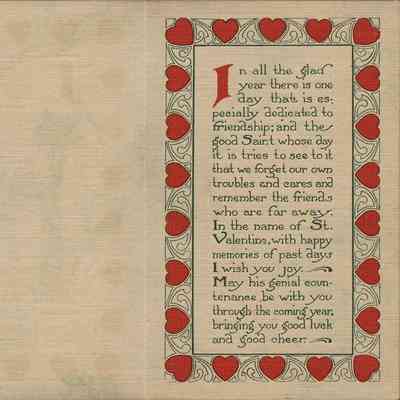 In all the glad
year there is one
day that is es-
pecially dedicated to
friendship; and the
good Saint whose day
it is tries to see to it
that we forget our own
troubles and cares and
remember the friends
who are far away.
In the name of St.
Valentine, with happy
memories of past days
I wish you joy.
May his genial coun-
tenance be with you
through the coming year,
bringing you good luck
and good cheer.